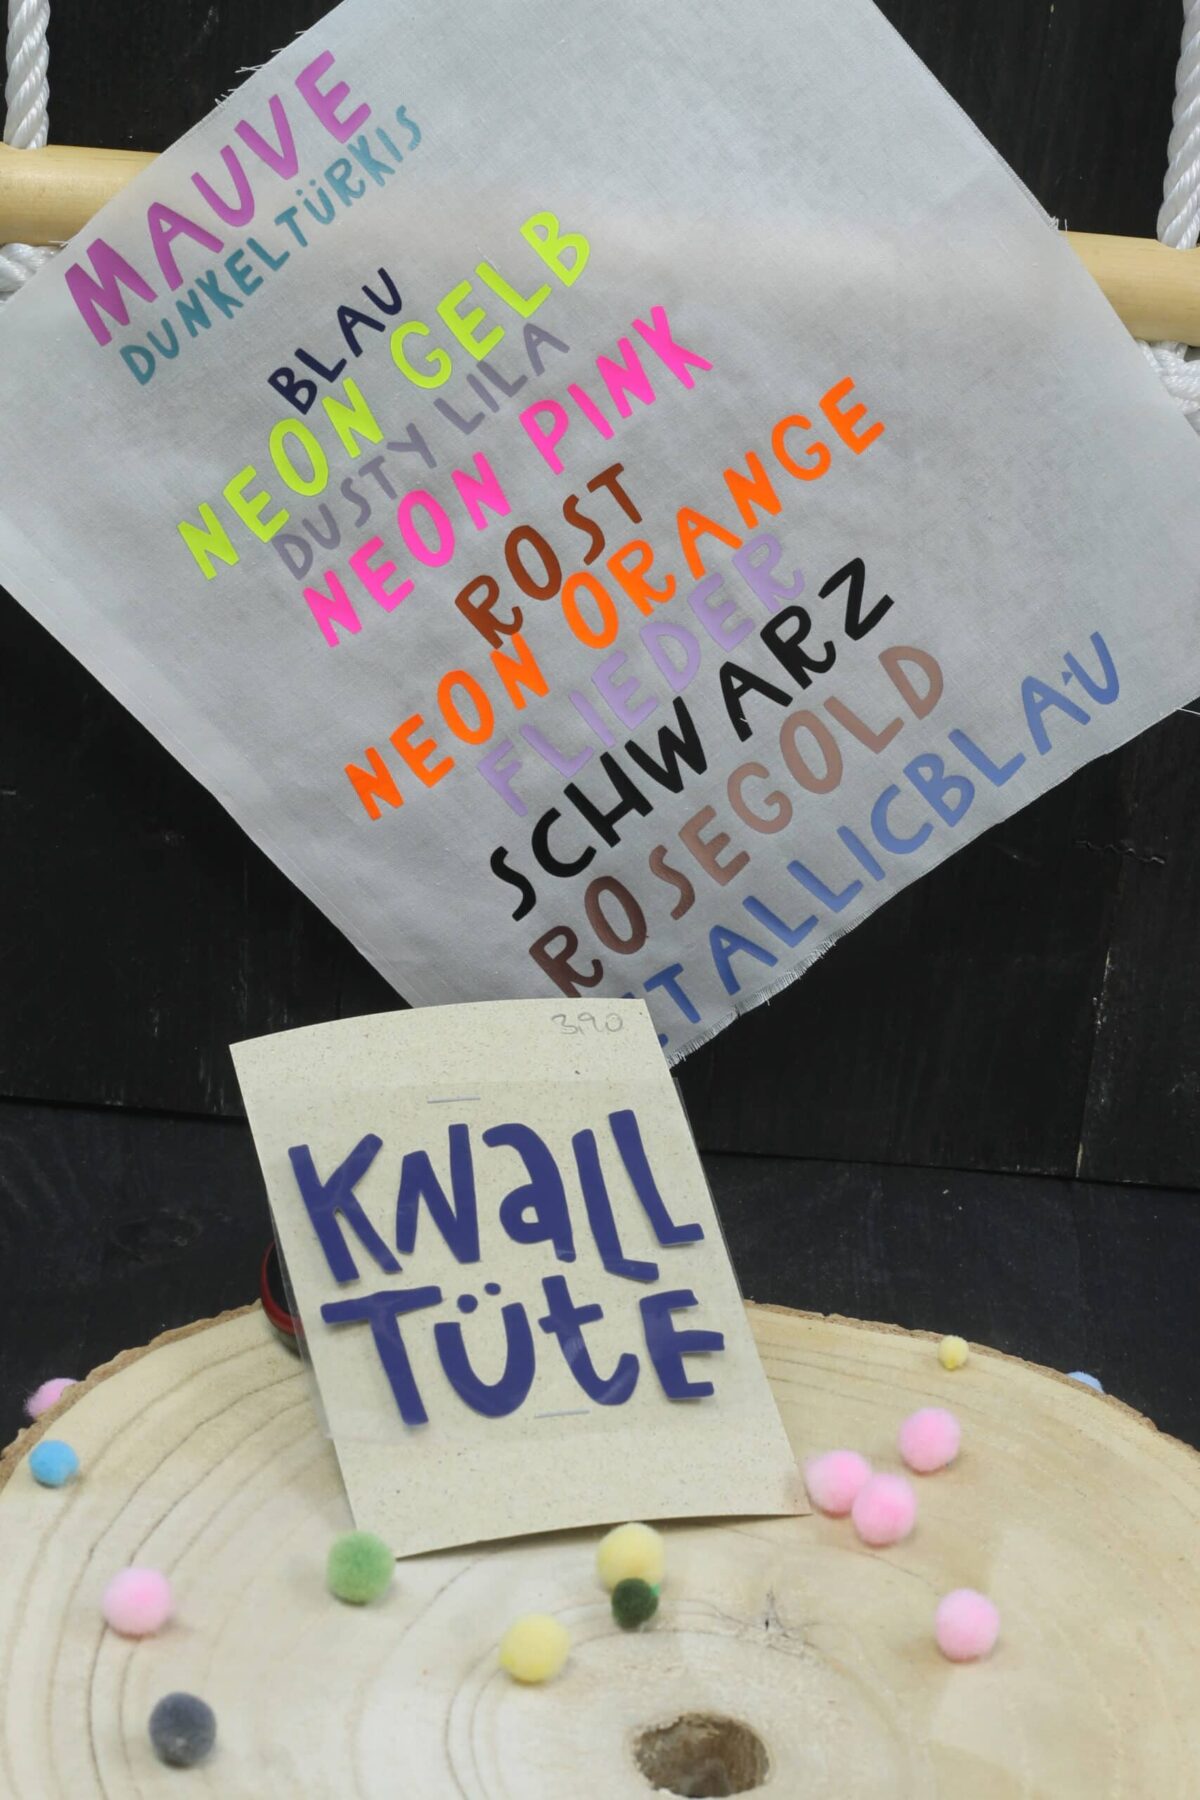 MAUVE
DUNKELTÜRKIS
BLAU
NEON GELB
DUSTY LILA
NEON PINK
ROST
NEON ORANGE
FLIEDER
SCHWARZ
ROSEGOLD
ETALLICBLAU
3,90
KNaLL
TütE